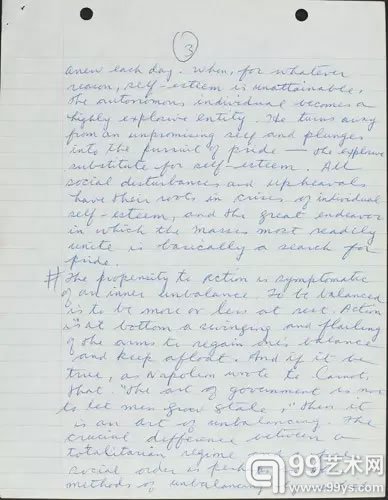 3
anew each day. When, for whatever
reason, self-esteem is unattainable,
the autonomous individual becomes a
highly explosive entity. He turns away
from an unpromising self and plunges
into the pursuit of pride — the explosive
substitute for self-esteem. All
social disturbances and upheavals
have their roots in crises of individual
self-esteem, and the great endeavor
in which the masses most readily
unite is basically a search for
pride.
# The propensity to action is symptomatic
of an inner unbalance. To be balanced
is to be more or less at rest. Action
is at bottom a swinging and flailing
of the arms to regain one's balance
and keep afloat. And if it be
true, as Napoleon wrote to Carnot,
that "The art of government is not
to let men grow stale," then it
is an art of unbalancing. The
crucial difference between a
totalitarian regime
social order is
methods of unbalancing
99艺术网
www.99ys.com